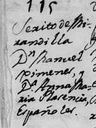 115
Sexito de Mi-
randilla
Dn. Manuel
Ximenes, y
Da. Anna Ma-
ria Florencia,
Españoles.